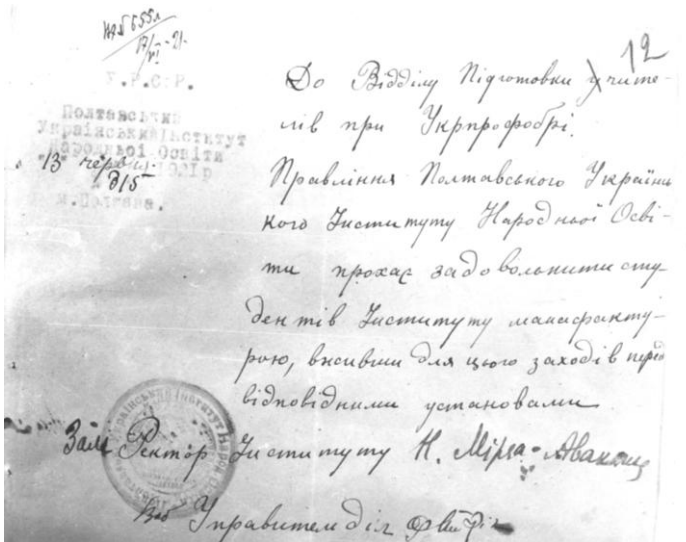 12
№ 6551
17/VI-21.
У.Р.С.Р.
Полтавський
Український Інститут
Народньої Освіти
"13" червня 1921 р
№ 815
м. Полтава.
До Відділу Підготовки учите-
лів при Укрпрофобрі.
Правління Полтавського Україн
кого Інституту Народньої Осві-
ти прохає задовольнити сту-
дентів Інституту манафакту-
рою, вживши для цього заходів перед
відповідними установами
Зам Ректор Інституту Н. Мірза-Авакянц
Управител діл